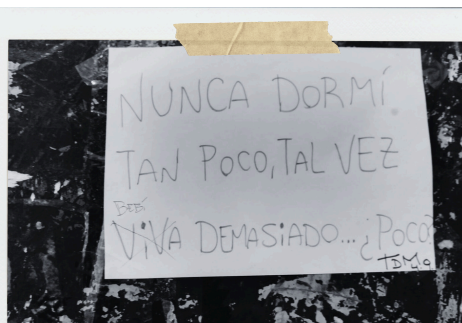 NUNCA DORMÍ
TAN POCO, TAL VEZ
BEBÍ
VIVÁ DEMASIADO... ¿POCO?